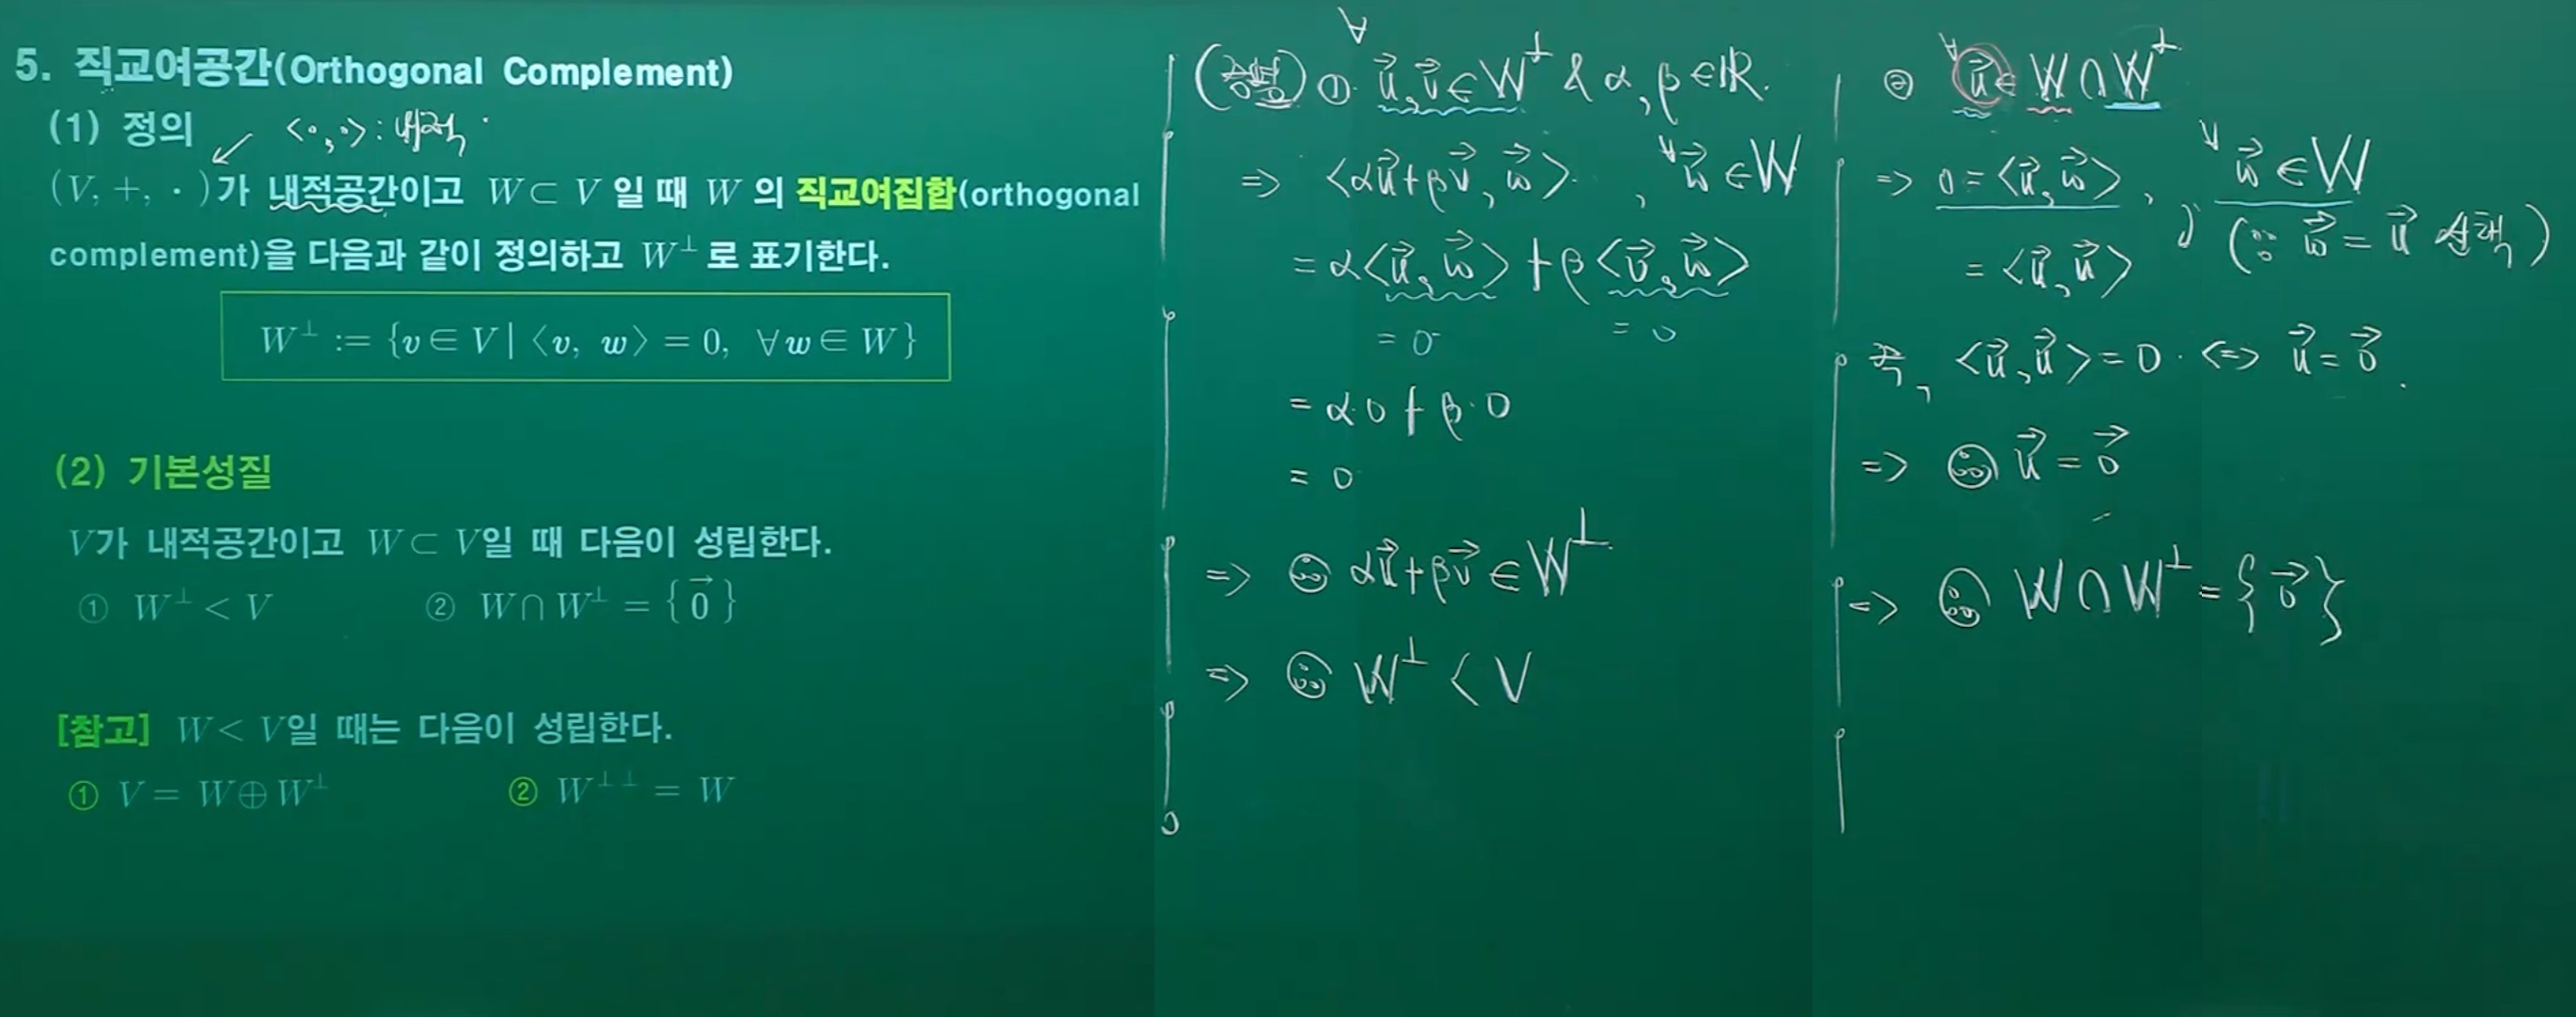 5. 직교여공간(Orthogonal Complement)
(1) 정의
<∘,∘> : 내적
(V, +, ·)가 내적공간이고 W⊂V일 때 W의 직교여집합(orthogonal
complement)을 다음과 같이 정의하고 W^⊥로 표기한다.
W^⊥ := {v∈V | ⟨v, w⟩ = 0, ∀w∈W}
(2) 기본성질
V가 내적공간이고 W⊂V일 때 다음이 성립한다.
① W^⊥ < V ② W∩W^⊥ = {0⃗}
[참고] W< V일 때는 다음이 성립한다.
① V = W⊕W^⊥ ② W^⊥⊥ = W
(증명) ① ∀u⃗, v⃗ ∈ W^⊥ & α, β ∈ ℝ.
⇒ <αu⃗+βv⃗, w⃗>, ∀w⃗ ∈ W
= α<u⃗, w⃗> + β<v⃗, w⃗>
= 0 = 0
= α·0 + β·0
= 0
⇒ ∴ αu⃗+βv⃗ ∈ W^⊥
⇒ ∴ W^⊥ < V
② ∀u⃗ ∈ W∩W^⊥
⇒ 0 = <u⃗, w⃗>, ∀w⃗ ∈ W
= <u⃗, u⃗> (∵ w⃗ = u⃗ 선택)
즉, <u⃗, u⃗> = 0 ⇔ u⃗ = 0⃗.
⇒ ∴ u⃗ = 0⃗
⇒ ∴ W∩W^⊥ = {0⃗}